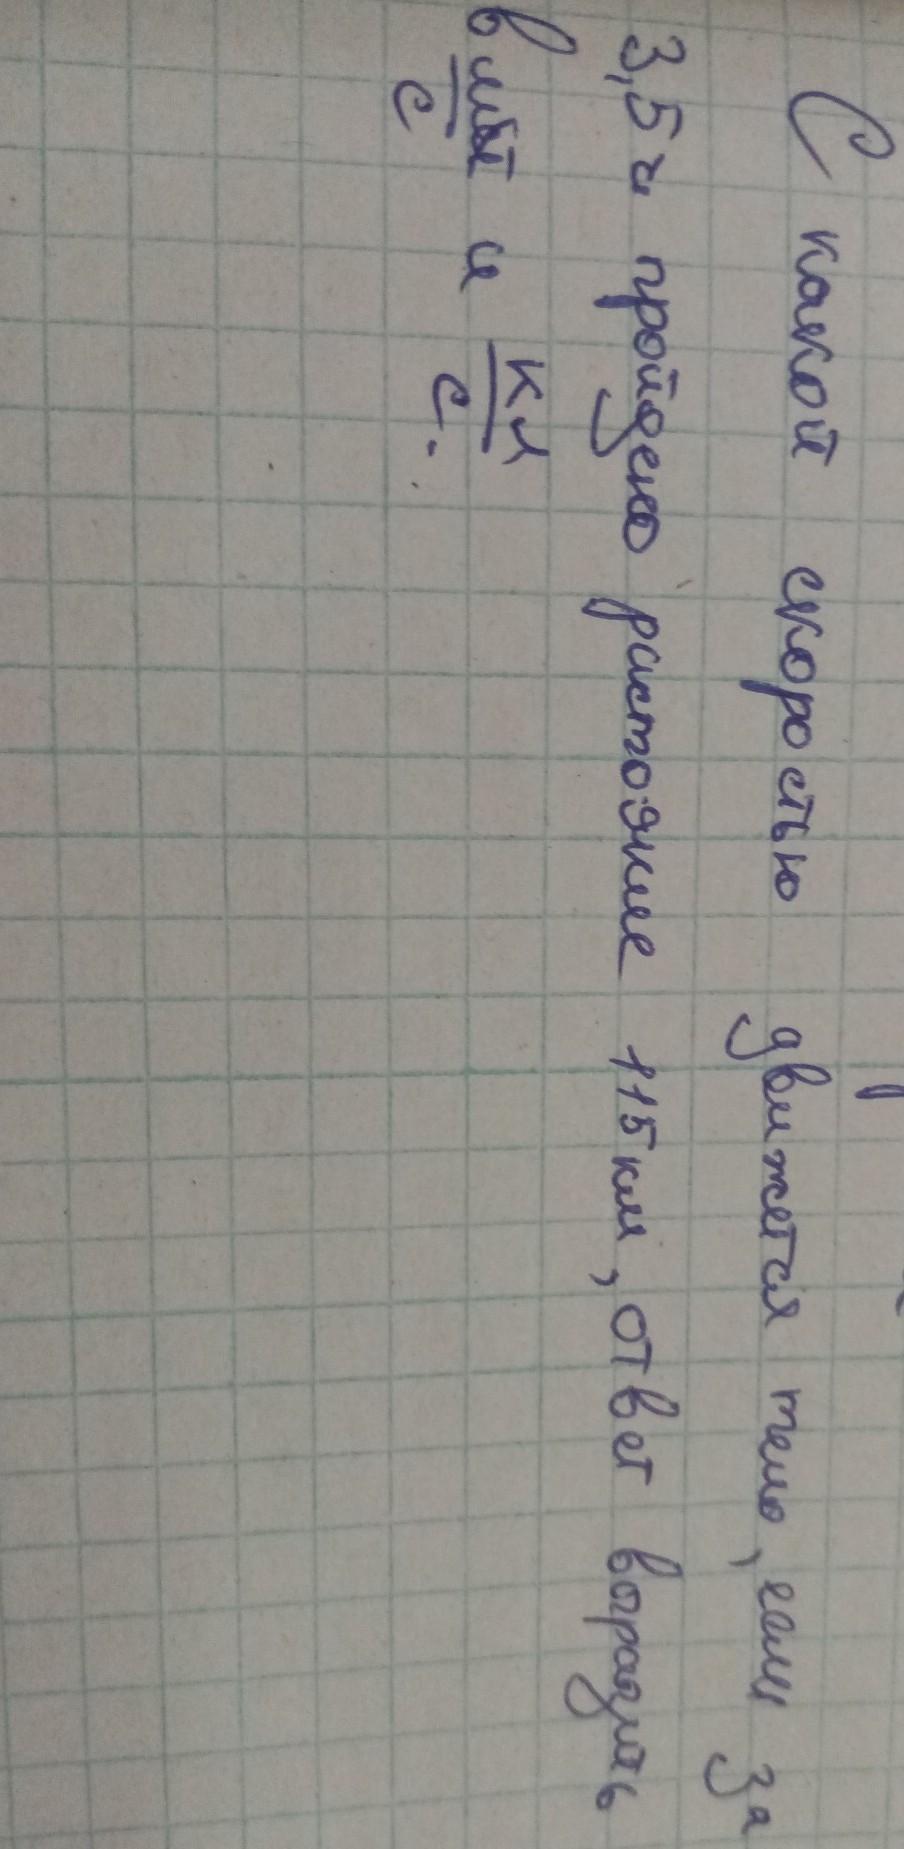 С какой скоростью движется тело, если за
3,5 ч пройдено растояние 115 км, ответ выразить
в м/с и км/с.